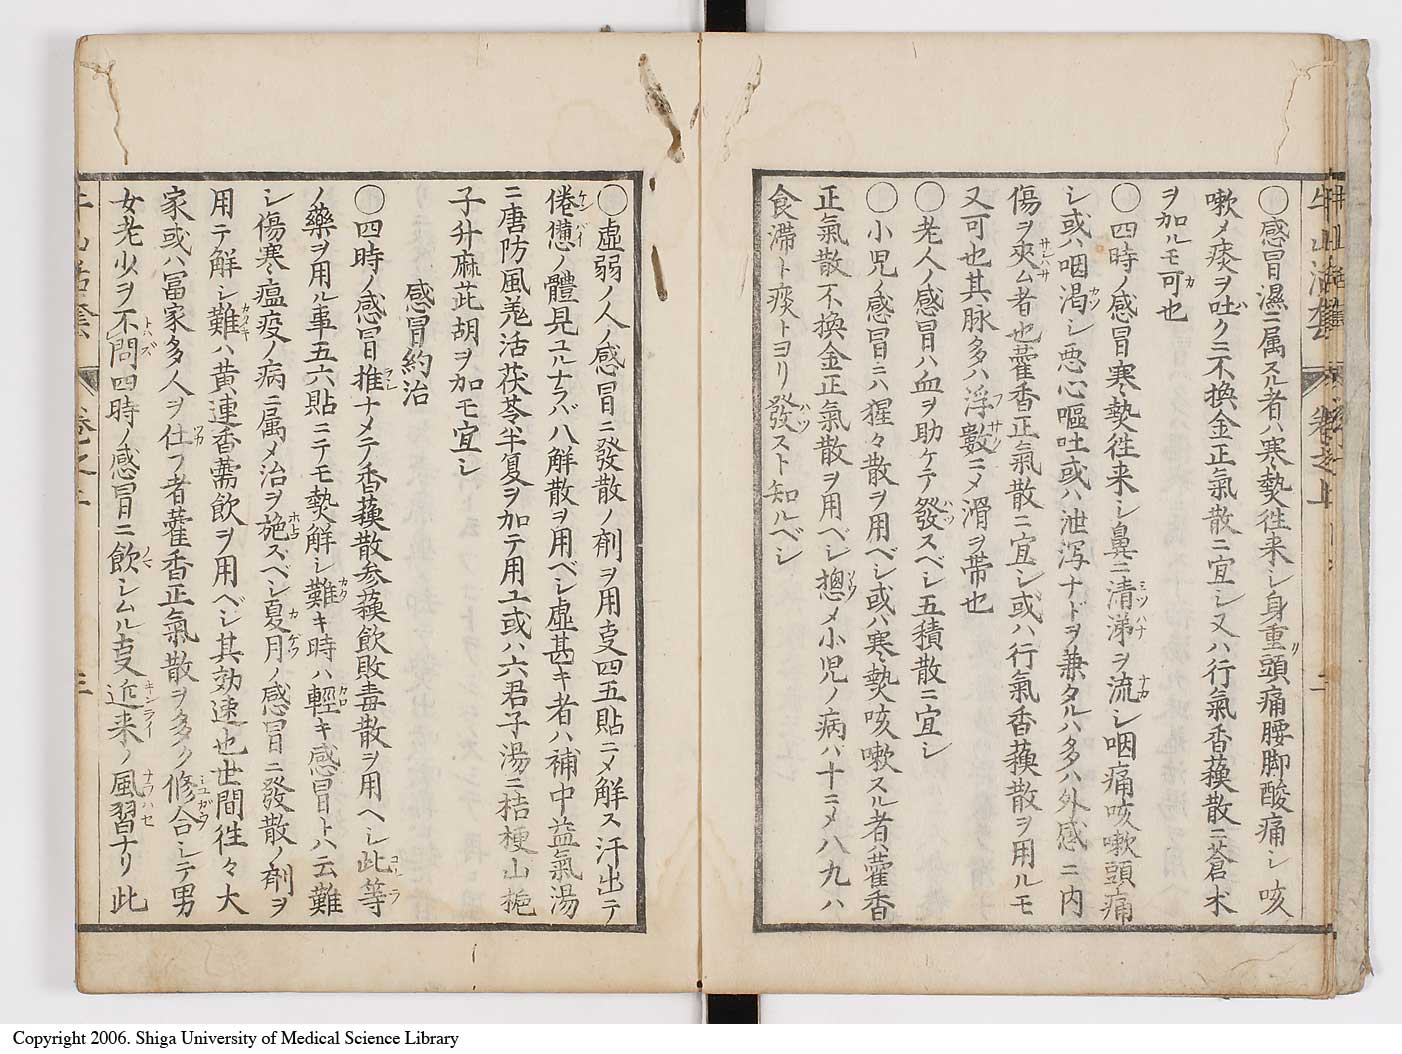 ○感冒濕ニ属スル者ハ寒熱徃来シ身重頭痛腰脚酸痛シ咳
嗽メ痰ヲ吐クニ不換金正氣散ニ宜シ又ハ行氣香蘓散ニ蒼朮
ヲ加ルモ可也
○四時ノ感冒寒熱徃来シ鼻ニ清涕ヲ流シ咽痛咳嗽頭痛
シ或ハ咽渇シ悪心嘔吐或ハ泄泻ナドヲ兼タルハ多ハ外感ニ内
傷ヲ夾ム者也藿香正氣散ニ宜シ或ハ行氣香蘓散ヲ用ルモ
又可也其脉多ハ浮數ニメ滑ヲ帯也
○老人ノ感冒ハ血ヲ助ケテ發スベシ五積散ニ宜シ
○小児ノ感冒ニハ猩々散ヲ用ベシ或ハ寒熱咳嗽スル者ハ藿香
正氣散不換金正氣散ヲ用ベシ摠メ小児ノ病ハ十ニメ八九ハ
食滞ト痰トヨリ發スト知ルベシ
○虚弱ノ人ノ感冒ニ發散ノ剤ヲ用叓四五貼ニメ解ス汗出テ
倦憊ノ體見ユルナラバ八解散ヲ用ベシ虚甚キ者ハ補中益氣湯
ニ唐防風羗活茯苓半夏ヲ加テ用ユ或ハ六君子湯ニ桔梗山梔
子升麻茈胡ヲ加モ宜シ
感冒約治
○四時ノ感冒推ナメテ香蘓散参蘓飲敗毒散ヲ用ヘシ此等
ノ藥ヲ用ル事五六貼ニテモ熱解シ難キ時ハ輕キ感冒トハ云難
シ傷寒瘟疫ノ病ニ属メ治ヲ施スベシ夏月ノ感冒ニ發散ノ剤ヲ
用テ解シ難ハ黄連香薷飲ヲ用ベシ其効速也世間徃々大
家或ハ冨家多人ヲ仕フ者藿香正氣散ヲ多ク修合シテ男
女老少ヲ不問四時ノ感冒ニ飲シムル叓近来ノ風習ナリ此